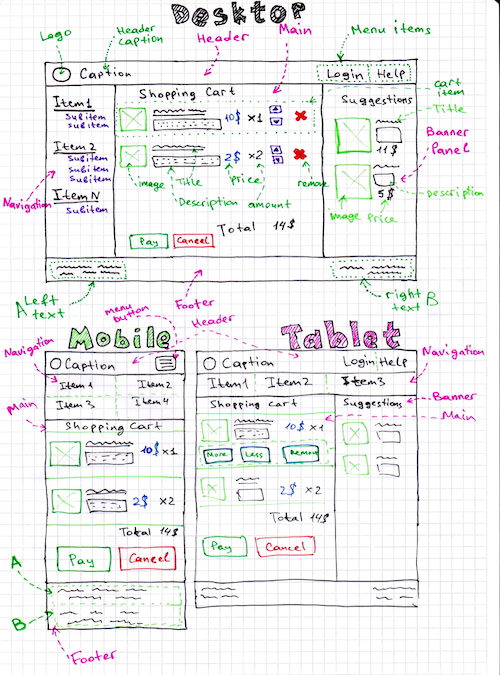 Desktop
Logo
Header caption
Header
Main
Menu items
Caption
Login Help
Shopping Cart
cart item
Item1
Subitem
Subitem
10$ ×1
Suggestions
Title
11$
Item2
Subitem
Subitem
Subitem
2$ ×2
Banner Panel
Navigation
image Title Price remove
Description amount
Description
5$
ItemN
Subitem
image Price
Total 14$
Pay Cancel
A Left text
Footer
right text B
Mobile
menu button
Header
Tablet
Navigation
Caption
Item1 Item2
Item3 Item4
Main
Shopping Cart
10$ ×1
2$ ×2
Total 14$
Pay Cancel
A
B
Footer
Caption
Login Help
Navigation
Item1 Item2 Item3
Shopping Cart
Suggestions
Banner
Main
10$ ×1
More Less Remove
2$ ×2
Total 14$
Pay Cancel